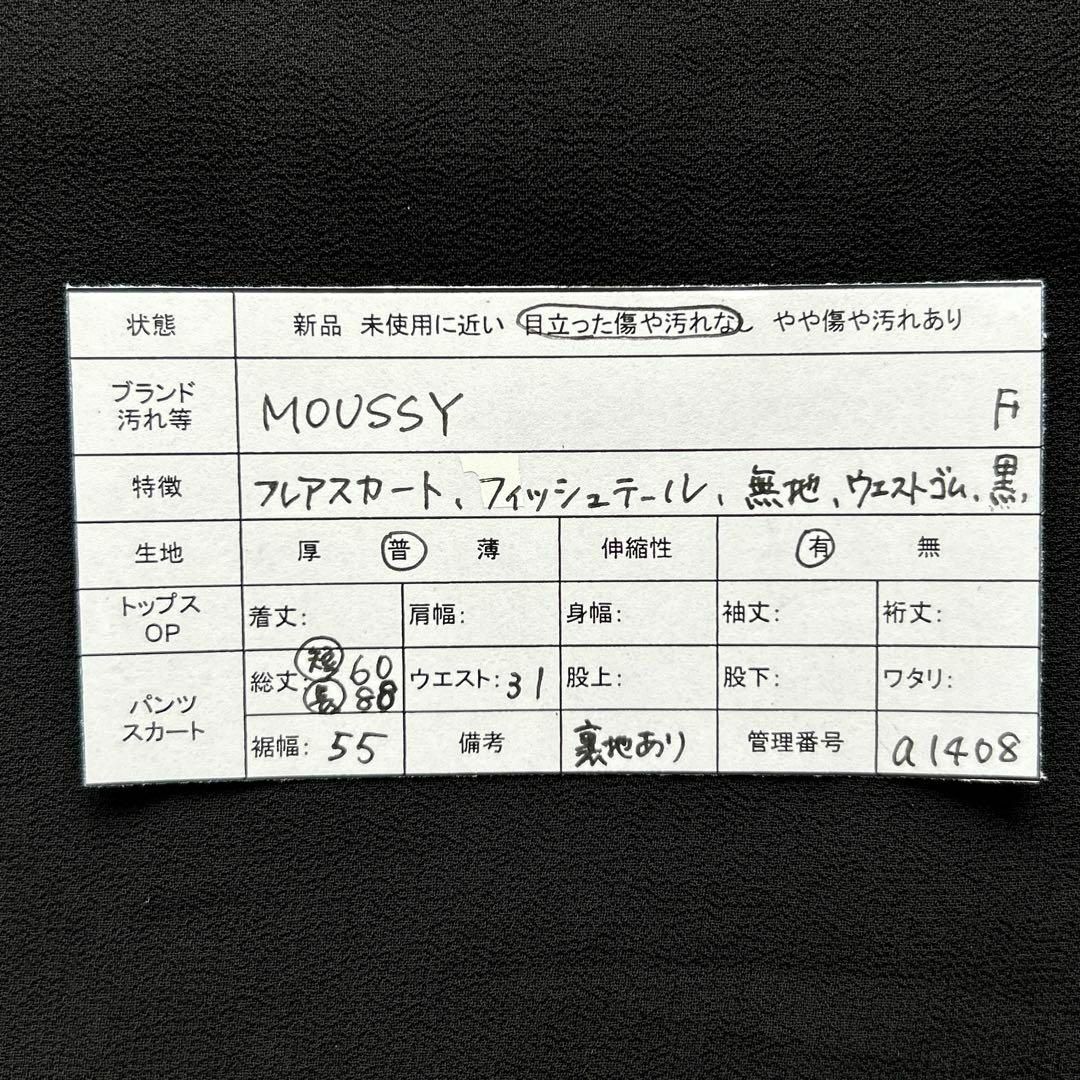 状態 新品 未使用に近い 目立った傷や汚れなし やや傷や汚れあり
ブランド
汚れ等
MOUSSY
特徴 フレアスカート、フィッシュテール、無地、ウエストゴム、黒、
生地 厚 普 薄 伸縮性 有 無
トップス
OP
着丈: 肩幅: 身幅: 袖丈: 裄丈:
パンツ
スカート
総丈: 短 60
長 88
ウエスト: 31 股上: 股下: ワタリ:
裾幅: 55 備考 裏地あり 管理番号 a1408